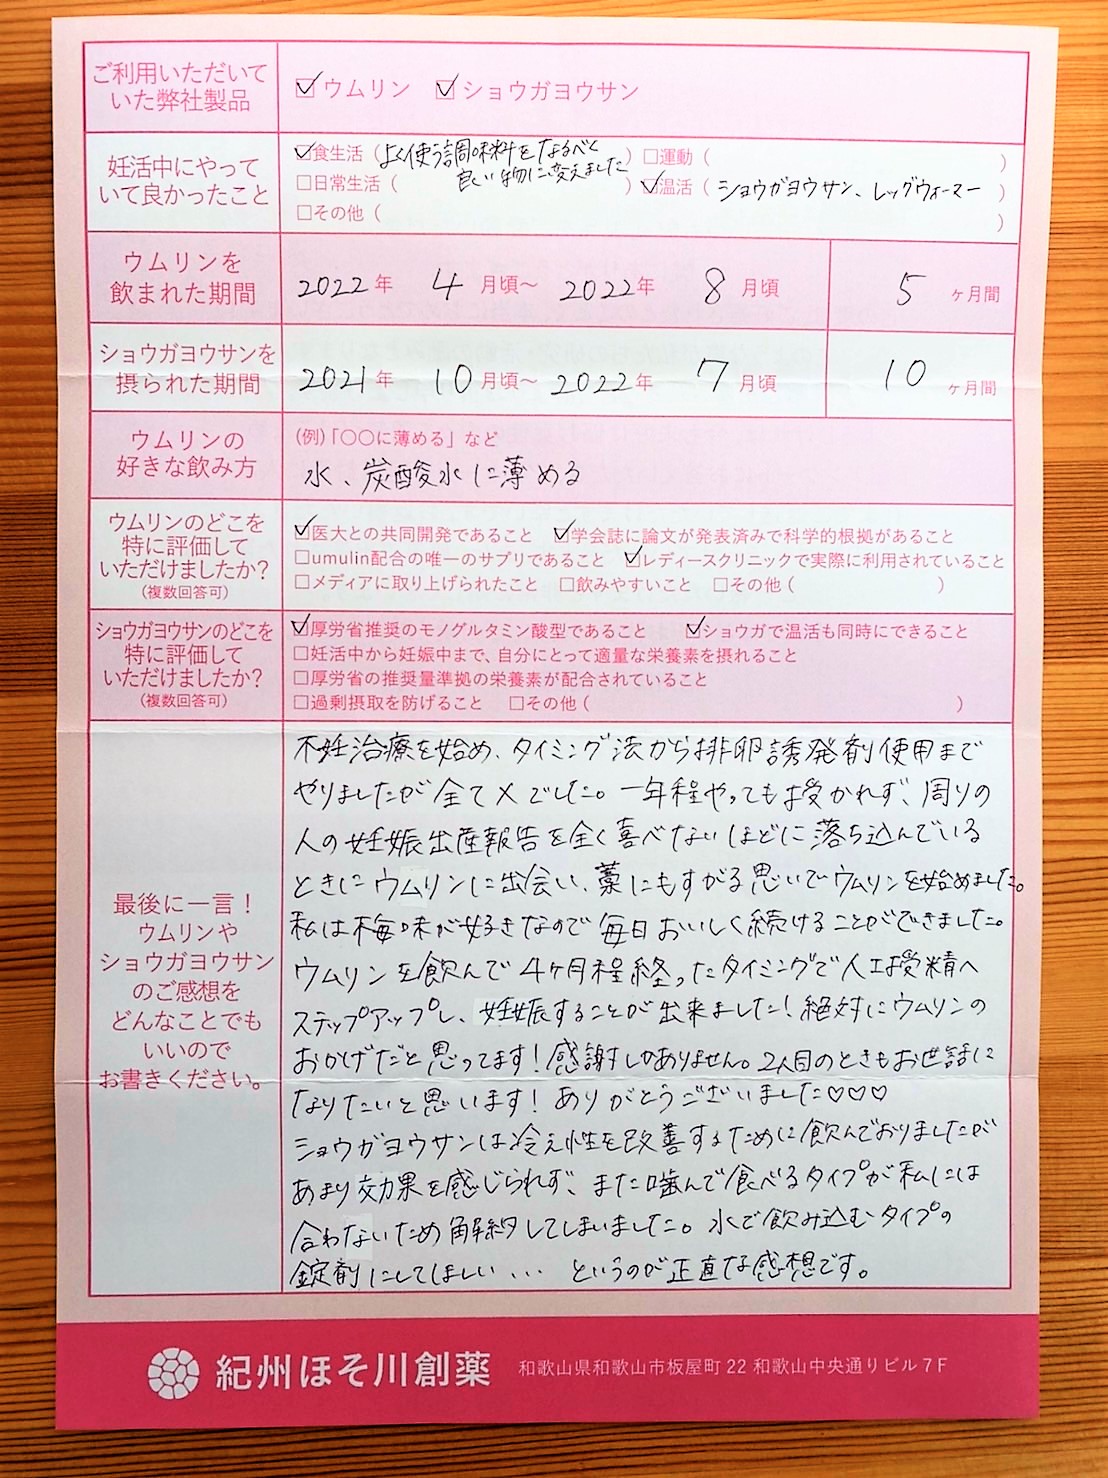 ご利用いただいて
いた弊社製品
☑ウムリン ☑ショウガヨウサン
妊活中にやって
いて良かったこと
☑食生活（よく使う調味料をなるべく
良い物に変えました）
□運動（ ）
□日常生活（ ）
☑温活（ショウガヨウサン、レッグウォーマー）
□その他（ ）
ウムリンを
飲まれた期間
2022年 4月頃〜 2022年 8月頃 5ヶ月間
ショウガヨウサンを
摂られた期間
2021年 10月頃〜 2022年 7月頃 10ヶ月間
ウムリンの
好きな飲み方
（例）「〇〇に薄める」など
水、炭酸水に薄める
ウムリンのどこを
特に評価して
いただけましたか？
（複数回答可）
☑医大との共同開発であること ☑学会誌に論文が発表済みで科学的根拠があること
□umulin配合の唯一のサプリであること ☑レディースクリニックで実際に利用されていること
□メディアに取り上げられたこと □飲みやすいこと □その他（ ）
ショウガヨウサンのどこを
特に評価して
いただけましたか？
（複数回答可）
☑厚労省推奨のモノグルタミン酸型であること ☑ショウガで温活も同時にできること
□妊活中から妊娠中まで、自分にとって適量な栄養素を摂れること
□厚労省の推奨量準拠の栄養素が配合されていること
□過剰摂取を防げること □その他（ ）
最後に一言！
ウムリンや
ショウガヨウサン
のご感想を
どんなことでも
いいので
お書きください。
不妊治療を始め、タイミング法から排卵誘発剤使用まで
やりましたが全て×でした。一年程やっても授かれず、周りの
人の妊娠出産報告を全く喜べないほどに落ち込んでいる
ときにウムリンに出会い、藁にもすがる思いでウムリンを始めました。
私は梅味が好きなので毎日おいしく続けることができました。
ウムリンを飲んで4ヶ月程経ったタイミングで人工授精へ
ステップアップし、妊娠することが出来ました！絶対にウムリンの
おかげだと思ってます！感謝しかありません。2人目のときもお世話に
なりたいと思います！ありがとうございました♡♡♡
ショウガヨウサンは冷え性を改善するために飲んでおりましたが
あまり効果を感じられず、また噛んで食べるタイプが私には
合わないため解約してしまいました。水で飲み込むタイプの
錠剤にしてほしい... というのが正直な感想です。
紀州ほそ川創薬 和歌山県和歌山市板屋町 22 和歌山中央通りビル 7F